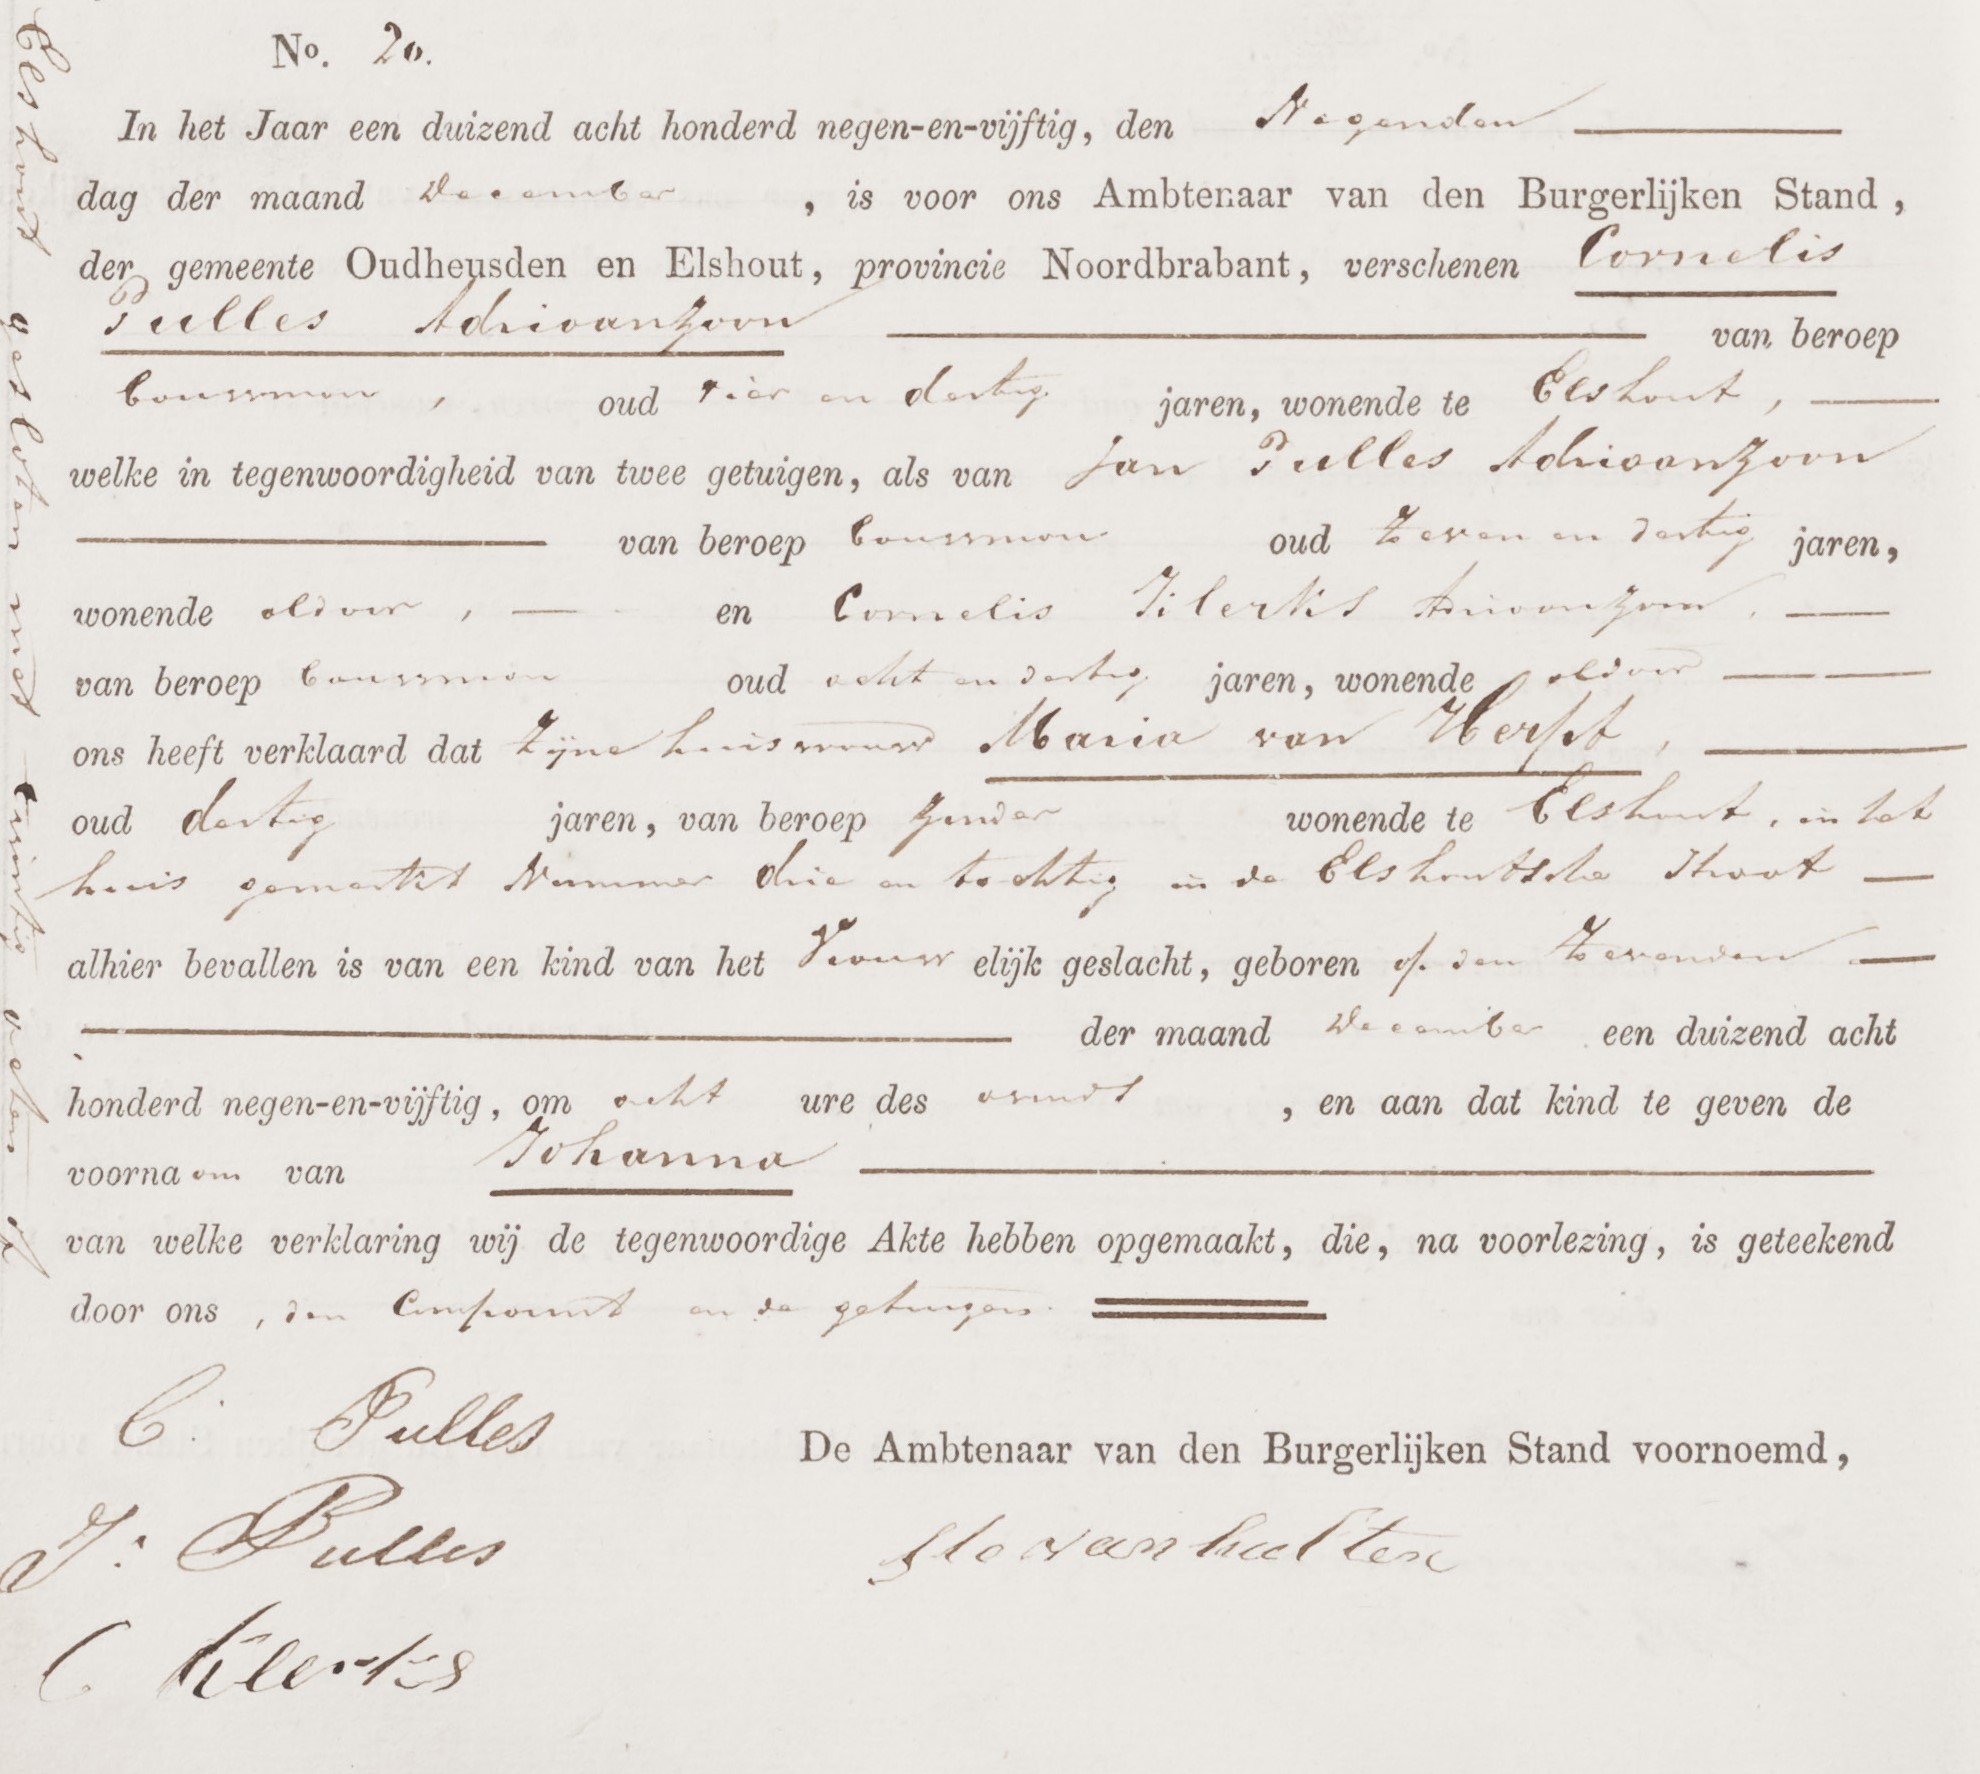 No. 20.
In het Jaar een duizend acht honderd negen-en-vijftig, den Negenden
dag der maand December, is voor ons Ambtenaar van den Burgerlijken Stand,
der gemeente Oudheusden en Elshout, provincie Noordbrabant, verschenen Cornelis
Pulles Adriaanzoon van beroep
bouwman, oud vier en dertig jaren, wonende te Elshout,
welke in tegenwoordigheid van twee getuigen, als van Jan Pulles Adriaanzoon
van beroep bouwman oud zeven en dertig jaren,
wonende aldaar, en Cornelis Klerks
van beroep bouwman oud acht en dertig jaren, wonende aldaar
ons heeft verklaard dat zijne huisvrouw Maria van Herpt,
oud dertig jaren, van beroep zonder wonende te Elshout, in het
huis gemerkt Nummer drie en tachtig in de Elshoutsche straat
alhier bevallen is van een kind van het Vrouwelijk geslacht, geboren op den zevenden
der maand December een duizend acht
honderd negen-en-vijftig, om acht ure des avonds, en aan dat kind te geven de
voornaam van Johanna
van welke verklaring wij de tegenwoordige Akte hebben opgemaakt, die, na voorlezing, is geteekend
door ons, den Comparant en de getuigen.
C. Pulles
De Ambtenaar van den Burgerlijken Stand voornoemd,
J. Pulles
van hulten
C Klerks
Elshout gesloten met twintig